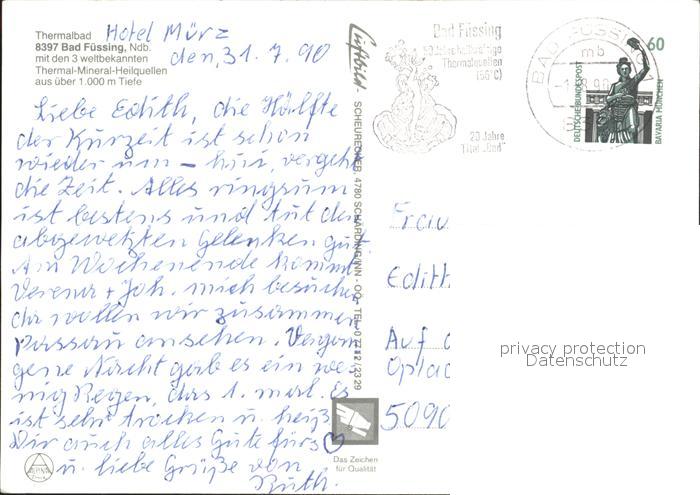 Thermalbad
8397 Bad Füssing, Ndb.
mit den 3 weltbekannten
Thermal-Mineral-Heilquellen
aus über 1.000 m Tiefe
Hotel Mürz
den, 31. 7. 90
Liebe Edith, die Hälfte
der Kurzeit ist schon
wieder um – hui, vergeht
die Zeit. Alles ringsum
ist bestens und tut den
abgewetzten Gelenken gut.
Am Wochenende kommt
Verena + Joh. mich besuchen
da wollen wir zusammen
Passau ansehen. Vergan
gene Nacht gab es ein we=
nig Regen, das 1. mal. Es
ist sehr trocken u. heiß.
Dir auch alles Gute fürs ♡
u. liebe Grüße von
Ruth.
ALPINA
Luftbild-
SCHEURECKER, 4780 SCHÄRDING/INN - OÖ - TEL. 0 77 12 / 23 29
Das Zeichen
für Qualität
Bad Füssing
50 Jahre schwefelhaltige
Thermalquellen
(56°C)
20 Jahre
Titel "Bad"
BAD FÜSSING
mb
60
DEUTSCHE BUNDESPOST
BAVARIA MÜNCHEN
Frau
Edith
Auf d
Oplad
5090
privacy protection
Datenschutz